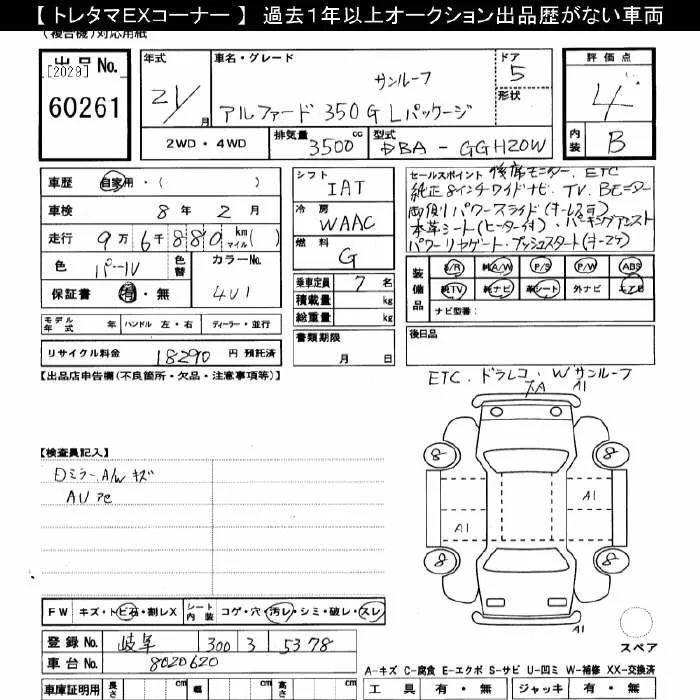 【 トレタマEXコーナー 】 過去１年以上オークション出品歴がない車両
(複合機)対応用紙
出品 No.
[2029]
60261
年式
21/ 月
車名・グレード
サンルーフ
アルファード 350G Lパッケージ
ドア
5
形状
評価点
4
内装 B
2WD・4WD
排気量 3500 cc
型式 DBA - GGH20W
車歴 自家用・( )
車検 8 年 2 月
走行 9 万 6 千 880 km マイル( )
色 パール 色替 カラーNo. 4U1
保証書 有・無
シフト
IAT
冷房
WAAC
燃料
G
乗車定員 7 名
積載量 kg
総重量 kg
書類期限
月 日
セールスポイント 後席モニター、ETC
純正8インチワイドナビ、TV、BEモニター
両側パワースライド(キーレス可)
本革シート(ヒーター付)、パーキングアシスト
パワーリヤゲート・プッシュスタート(キー2ヶ)
装備品
S/R 純A/W P/S P/W ABS
純TV 純ナビ 革シート 外ナビ エアB
ナビ型番:
モデル年式 年 ハンドル 左・右 ディーラー・並行
リサイクル料金 18290 円 預託済
後日品
【出品店申告欄(不良箇所・欠品・注意事項等)】
ETC、ドラレコ、Wサンルーフ
A A1
8 8
A1
A1
8 8
A1
スペア
【検査員記入】
Dミラー、A/W キズ
AU

FW キズ・トビ石・割レX シート内装 コゲ・穴・汚レ・シミ・破レ・スレ
登録 No. 岐阜 300 3 5378
車台 No. 8020620
車庫証明用 長さ cm 幅 cm 高さ cm
A-キズ C-腐食 E-エクボ S-サビ U-凹ミ W-補修 XX-交換済
工具 有・無 ジャッキ 有・無